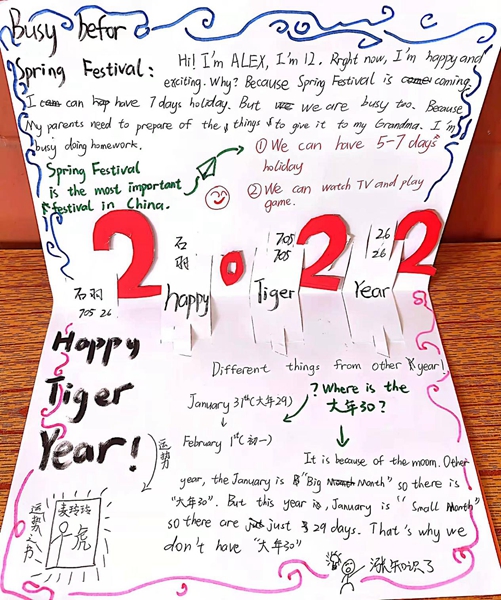 Busy befor
Spring Festival:
Hi! I'm ALEX, I'm 12. Rright now, I'm happy and
exciting. Why? Because Spring Festival is coming.
I can have 7 days holiday. But we are busy two. Because
My parents need to prepare of the things to give it to my Grandma. I'm
busy doing homework.
Spring Festival
is the most important
festival in China.
① We can have 5-7 days
holiday
② We can watch TV and play
game.
2022
石羽
705 26
石
羽
705
705
26
26
happy
Tiger
Year
Happy
Tiger
Year!
Different things from other year!
January 31th (大年29)
↓
February 1st (初一)
? Where is the
大年30?
It is because of the moom. Other
year, the January is "Big Month" so there is
"大年30". But this year is, January is "Small Month"
so there are just 29 days. That's why we
don't have "大年30"
运势
运势之书
麦玲玲
虎
涨知识了